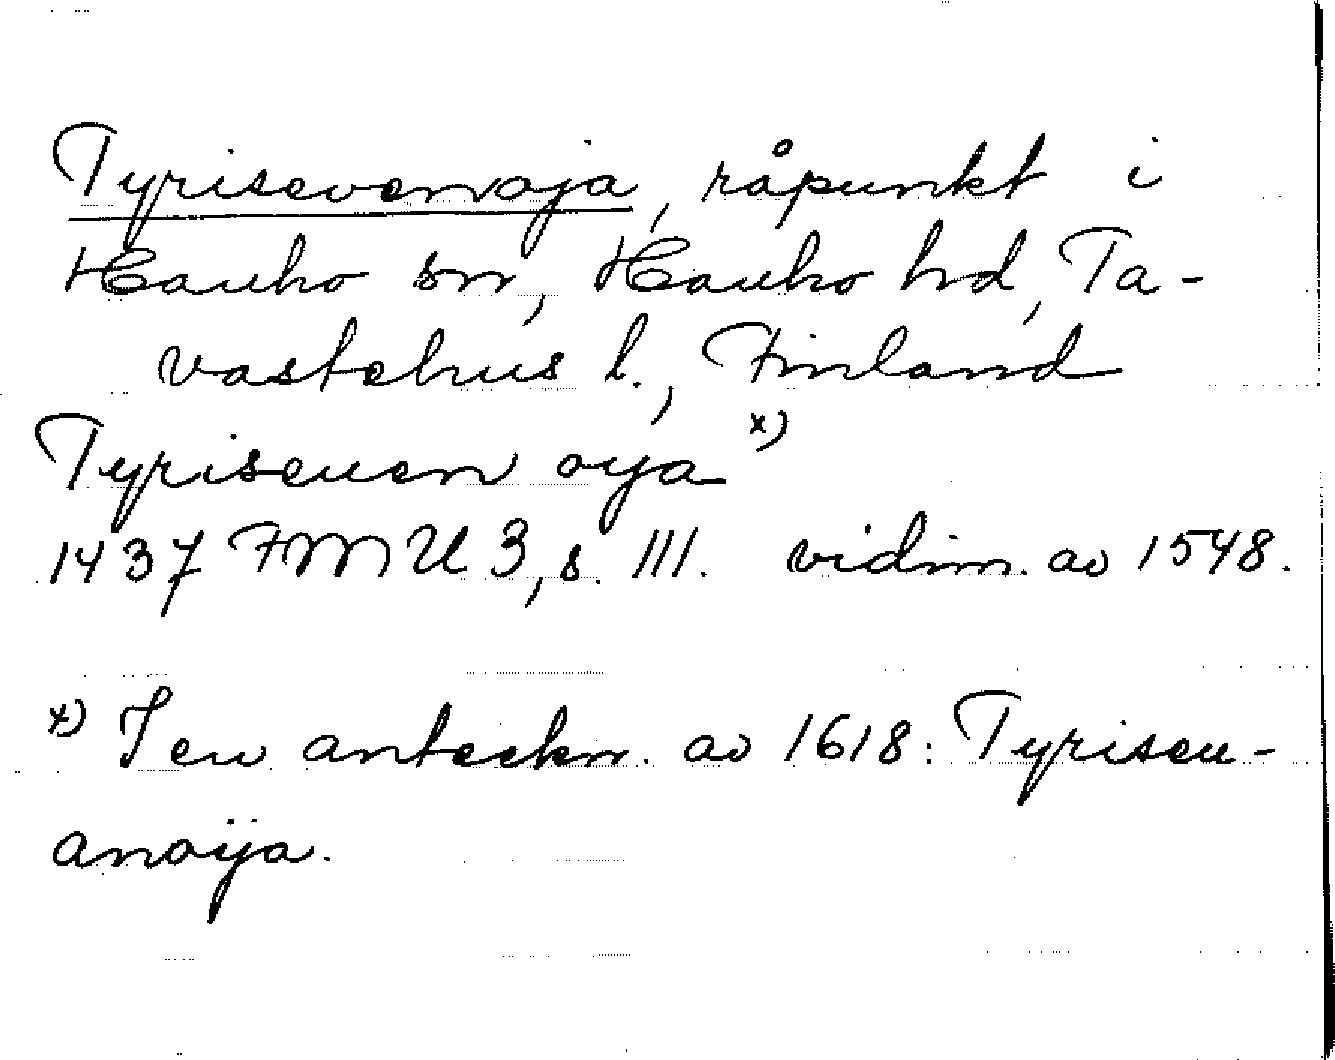 Tyrisevenoja, råpunkt i
Hauho sn, Hauho hd, Ta-
vastehus l., Finland
Tyriseuen oya x)
1437 FMU 3, s. 111. vidim. av 1548.
x) I en anteckn. av 1618: Tyriseu-
anoÿa.